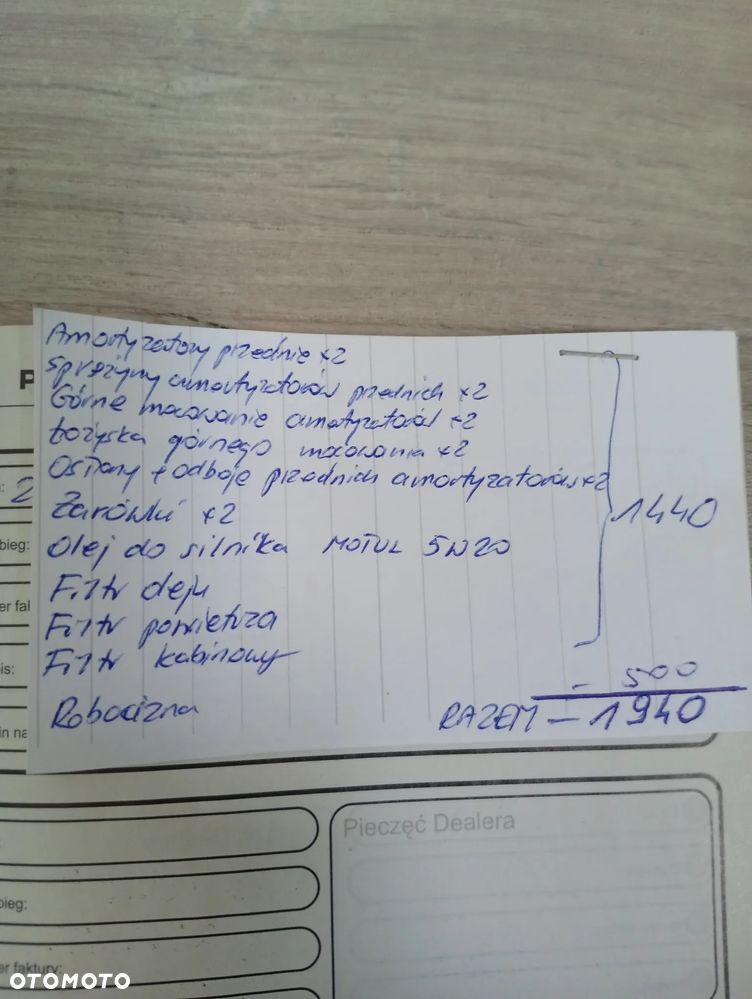 Amortyzatory przednie x2
Sprężyny amortyzatorów przednich x2
Górne mocowanie amortyzatorów x2
Łożyska górnego mocowania x2
Osłony + odboje przednich amortyzatorów x2
Żarówki x2
Olej do silnika MOTUL 5W20
Filtr oleju
Filtr powietrza
Filtr kabinowy
1440
Robocizna - 500
RAZEM - 1940
P
: 2
bieg:
er fak
is:
in na
Pieczęć Dealera
bieg:
er faktury:
OTOMOTO